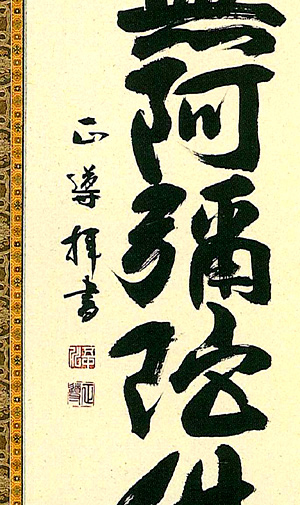 無阿彌陀佛
正導拝書